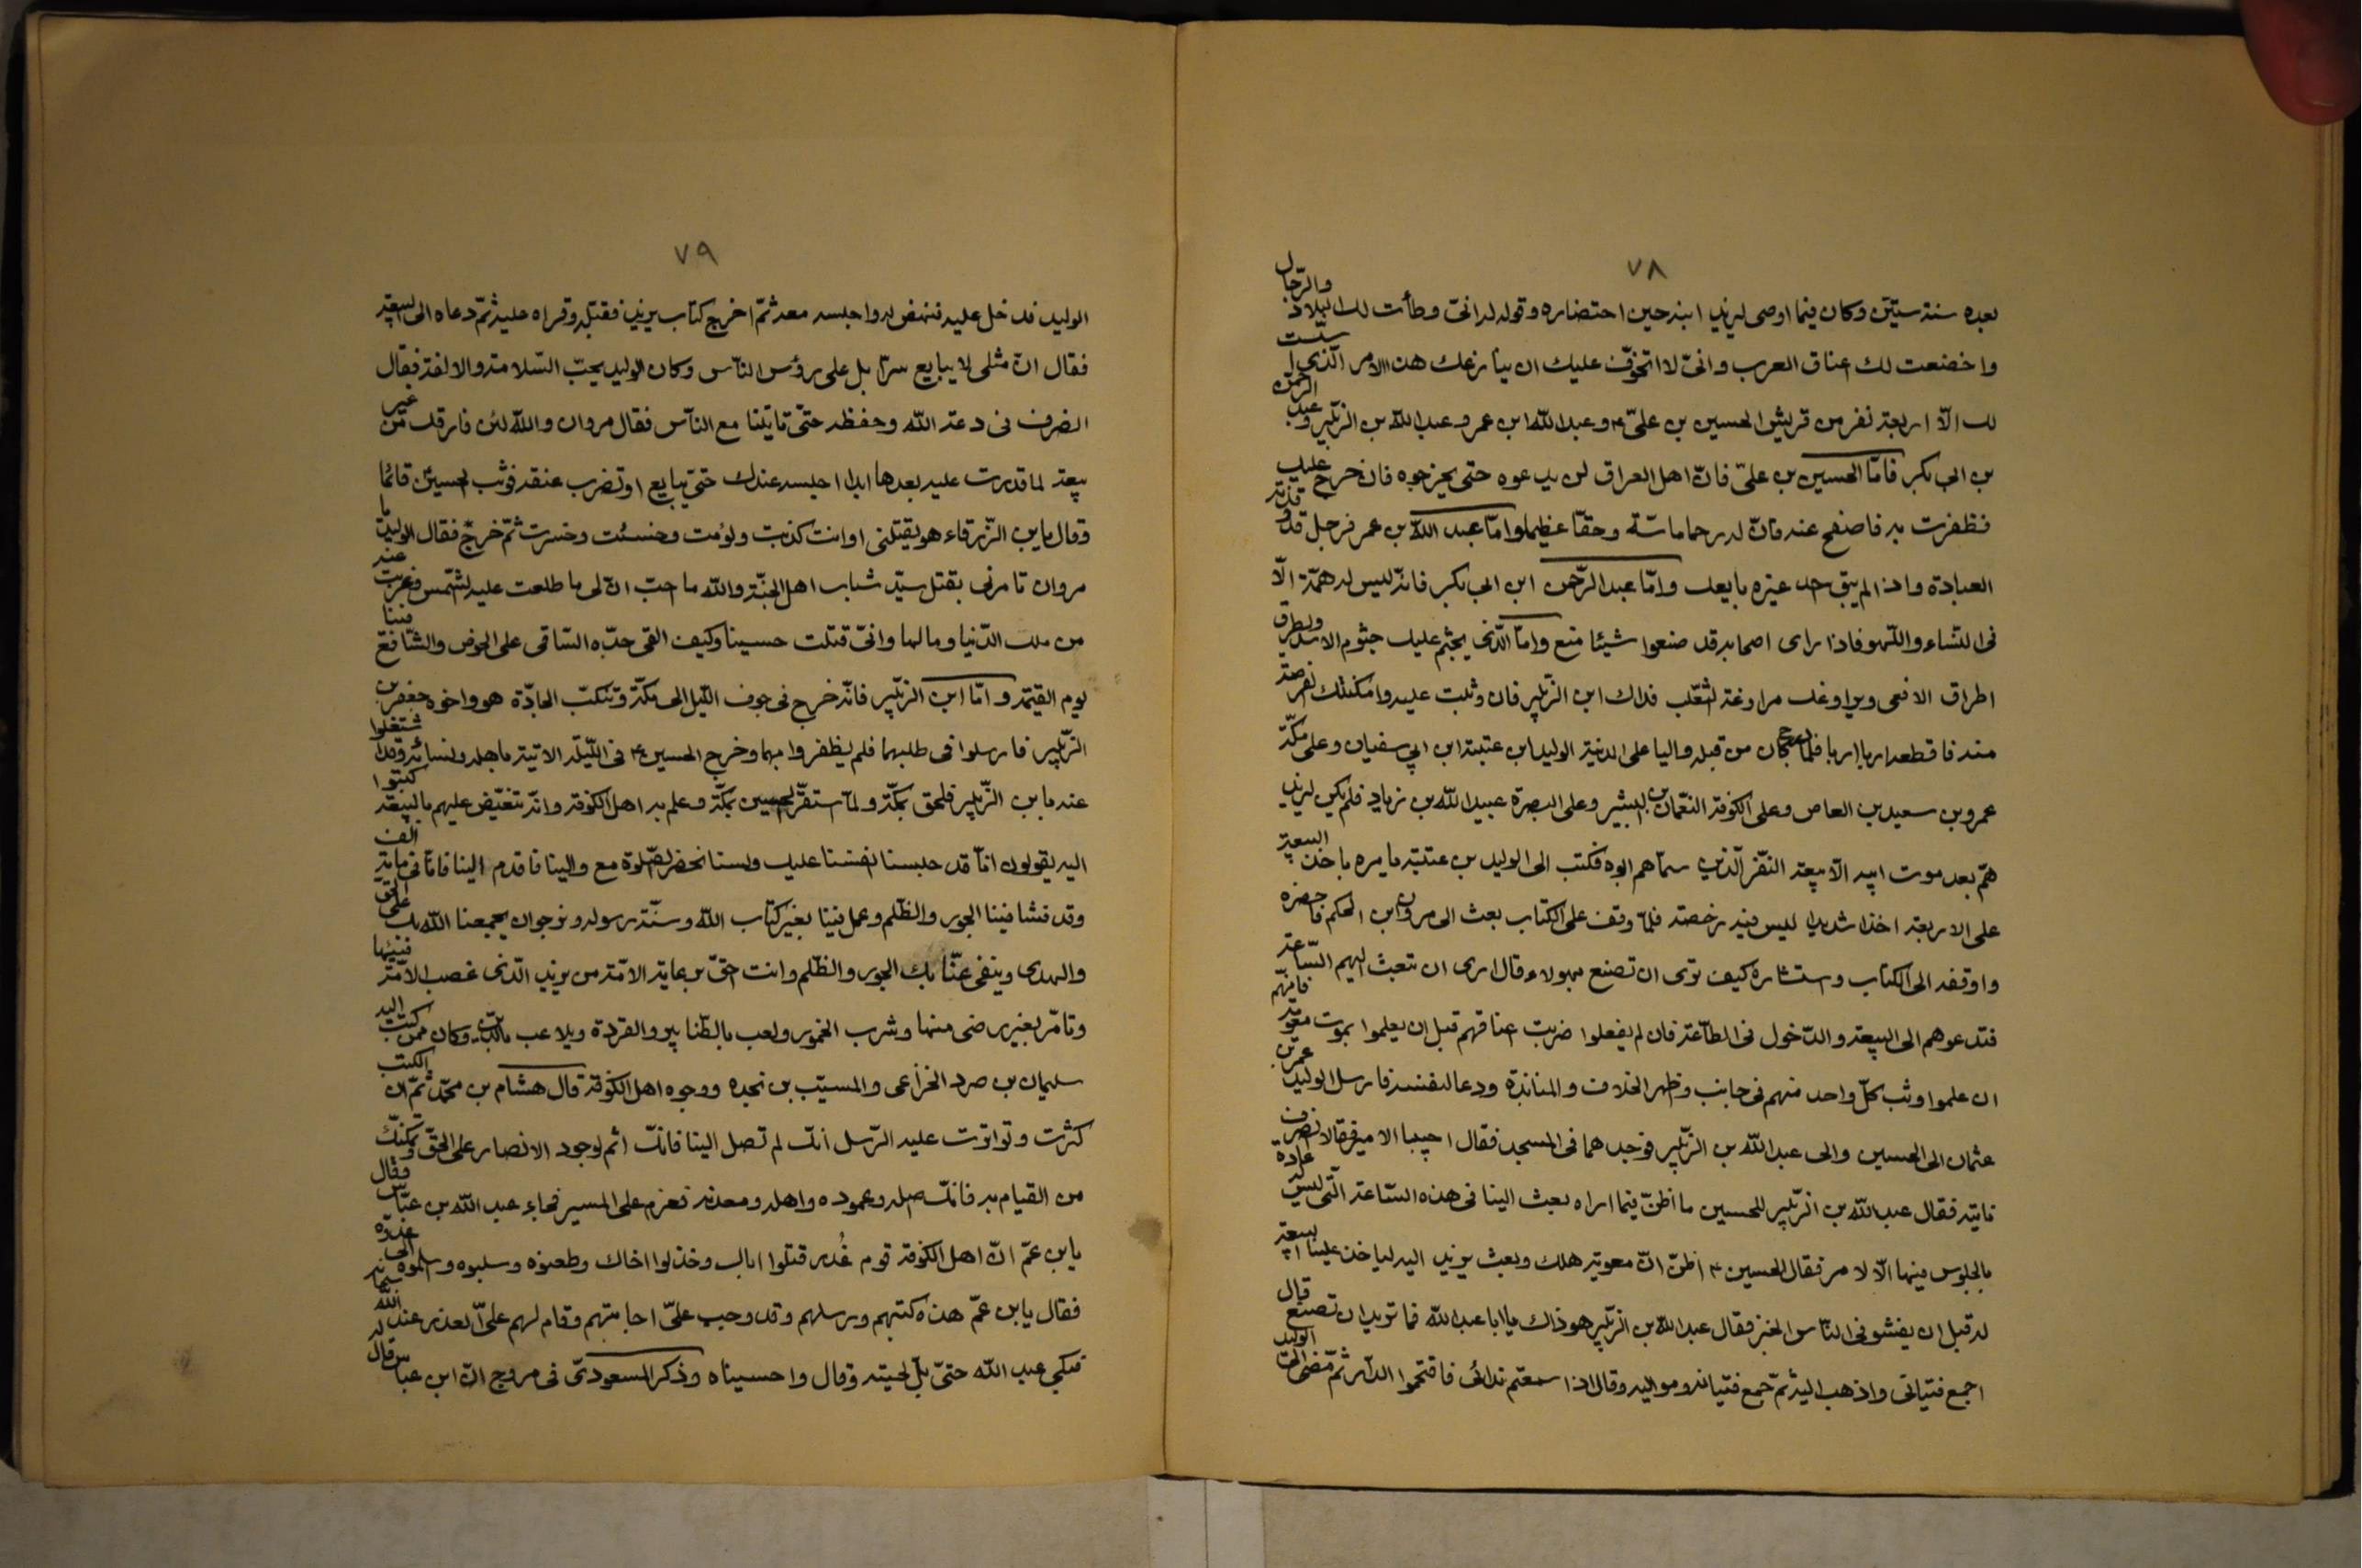 ٧٨
بعده سنة ستين وكان فيما اوصى ليزيد ابنه حين احتضاره وقوله له انى وطأت لك البلاد والرجال
واخضعت لك اعناق العرب وانى لا اتخوف عليك ان ينازعك هذا الامر الذى
لك الا اربعة نفر من قريش الحسين بن على ع وعبد الله ابن عمر وعبد الله بن الزبير وعبد الرحمن
بن ابى بكر فاما الحسين بن على فان اهل العراق لن يدعوه حتى يخرجوه فان خرج عليك
فظفرت به فاصفح عنه فان له رحما ماسة وحقا عظيما واما عبد الله بن عمر فرجل قد وقذته
العبادة واذا لم يبق احد غيره بايعك واما عبد الرحمن ابن ابى بكر فانه ليس له همة الا
فى النساء واللهو فاذا راى اصحابه قد صنعوا شيئا صنع واما الذى يجثم عليك جثوم الاسد ويطرق
اطراق الافعى ويراوغك مراوغة الثعلب فذاك ابن الزبير فان وثبت عليه وامكنتك فرصة
منه فاقطعه اربا اربا فلما كان من قبله واليا على المدينة الوليد ابن عتبة ابن ابي سفيان وعلى مكة
عمرو بن سعيد بن العاص وعلى الكوفة النعمان بن البشير وعلى البصرة عبيد الله بن زياد فلم يكن ليزيد
هم بعد موت ابيه الا بيعة النفر الذين سماهم ابوه فكتب الى الوليد بن عتبة يامره باخذ البيعة
على الاربعة اخذا شديدا ليس فيه رخصة فلما وقف على الكتاب بعث الى مروان ابن الحكم فاحضره
واوقفه الى الكتاب واستشاره كيف ترى ان تصنع بهولاء قال ارى ان تبعث اليهم الساعة
فتدعوهم الى البيعة والدخول فى الطاعة فان لم يفعلوا ضربت اعناقهم قبل ان يعلموا بموت معوية فانهم
ان علموا وثب كل واحد منهم فى جانب وظهر الخلاف والمنابذة ودعا لنفسه فارسل الوليد عمر بن
عثمان الى الحسين والى عبد الله بن الزبير فوجدهما فى المسجد فقال اجيبا الامير فقالا انصرف
ناتيه فقال عبد الله بن الزبير للحسين ما اظن فيما اراه بعث الينا فى هذه الساعة التى ليس له عادة
بالجلوس فيها الا لامر فقال الحسين ع اظن ان معوية هلك وبعث يزيد اليه لياخذ علينا بيعة
له قبل ان يفشو فى الناس الخبر فقال عبد الله بن الزبير هو ذاك يا ابا عبد الله فما تريد ان تصنع قال
اجمع فتيانى واذهب اليه ثم جمع فتيانه ومواليه وقال اذا سمعتم ندائى فاقتحموا الدار ثم مضى الى الوليد
٧٩
الوليد فدخل عليه فنهض له واجلسه معه ثم اخرج كتاب يزيد فقبله وقراه عليه ثم دعاه الى البيعة
فقال ان مثلى لا يبايع سرا بل على رؤس الناس وكان الوليد يحب السلامة والالفة فقال
انصرف فى دعة الله وحفظه حتى تاتينا مع الناس فقال مروان والله لئن فارقك من غير
بيعة لما قدرت عليه بعدها ابدا احبسه عندك حتى يبايع او تضرب عنقه فوثب الحسين قائما
وقال يابن الزرقاء هو يقتلنى او انت كذبت ولؤمت وخسئت وخسرت ثم خرج فقال الوليد يا
مروان تامرنى بقتل سيد شباب اهل الجنة والله ما احب ان لى ما طلعت عليه الشمس وغربت عنه
من ملك الدنيا ومالها وانى قتلت حسينا وكيف القى جده الساقى على الحوض والشافع فينا
يوم القيمة واما ابن الزبير فانه خرج فى جوف الليل الى مكة وتنكب الجادة هو واخوه جعفر بن
الزبير فارسلوا فى طلبهما فلم يظفروا بهما وخرج الحسين ع فى الليلة الاتية باهله ونسائه وقد اشتغلوا
عنه بابن الزبير فلحق بمكة ولما استقر الحسين بمكة وعلم به اهل الكوفة وانه عليهم بالبيعة كتبوا
اليه يقولون انا قد حبسنا انفسنا عليك ولسنا نحضر الصلوة مع والينا فاقدم الينا فانا فى ماية الف
وقد فشا فينا الجور والظلم وعمل فينا بغير كتاب الله وسنة رسوله ونرجو ان يجمعنا الله بك على الحق
والهدى وينفى عنا بك الجور والظلم وانت احق برعاية الامة من يزيد الذى غصب الامة فيئها
وتامر بغير رضى منها وشرب الخمور ولعب بالطنابير والقردة ويلاعب وكان ممن كتب اليه
سليمان بن صرد الخزاعى والمسيب بن نجده ووجوه اهل الكوفة قال هشام بن محمد ثم ان الكتب
كثرت وتواترت عليه الرسل انك لم تصل الينا فانك اثم لوجود الانصار على الحق وتمكنك
من القيام به فانك اصله وعموده واهله ومعدنه فعزم على المسير فجاء عبد الله بن عباس فقال
يابن عم ان اهل الكوفة قوم غُدر قتلوا اباك وخذلوا اخاك وطعنوه وسلبوه وسلموه الى عدوه
فقال يابن عم هذه كتبهم ورسلهم وقد وجب على اجابتهم وقام لهم على العذر عند الله سبحانه
فبكى عبد الله حتى بل لحيته وقال واحسيناه وذكر المسعودى فى مروج ان ابن عباس قال له